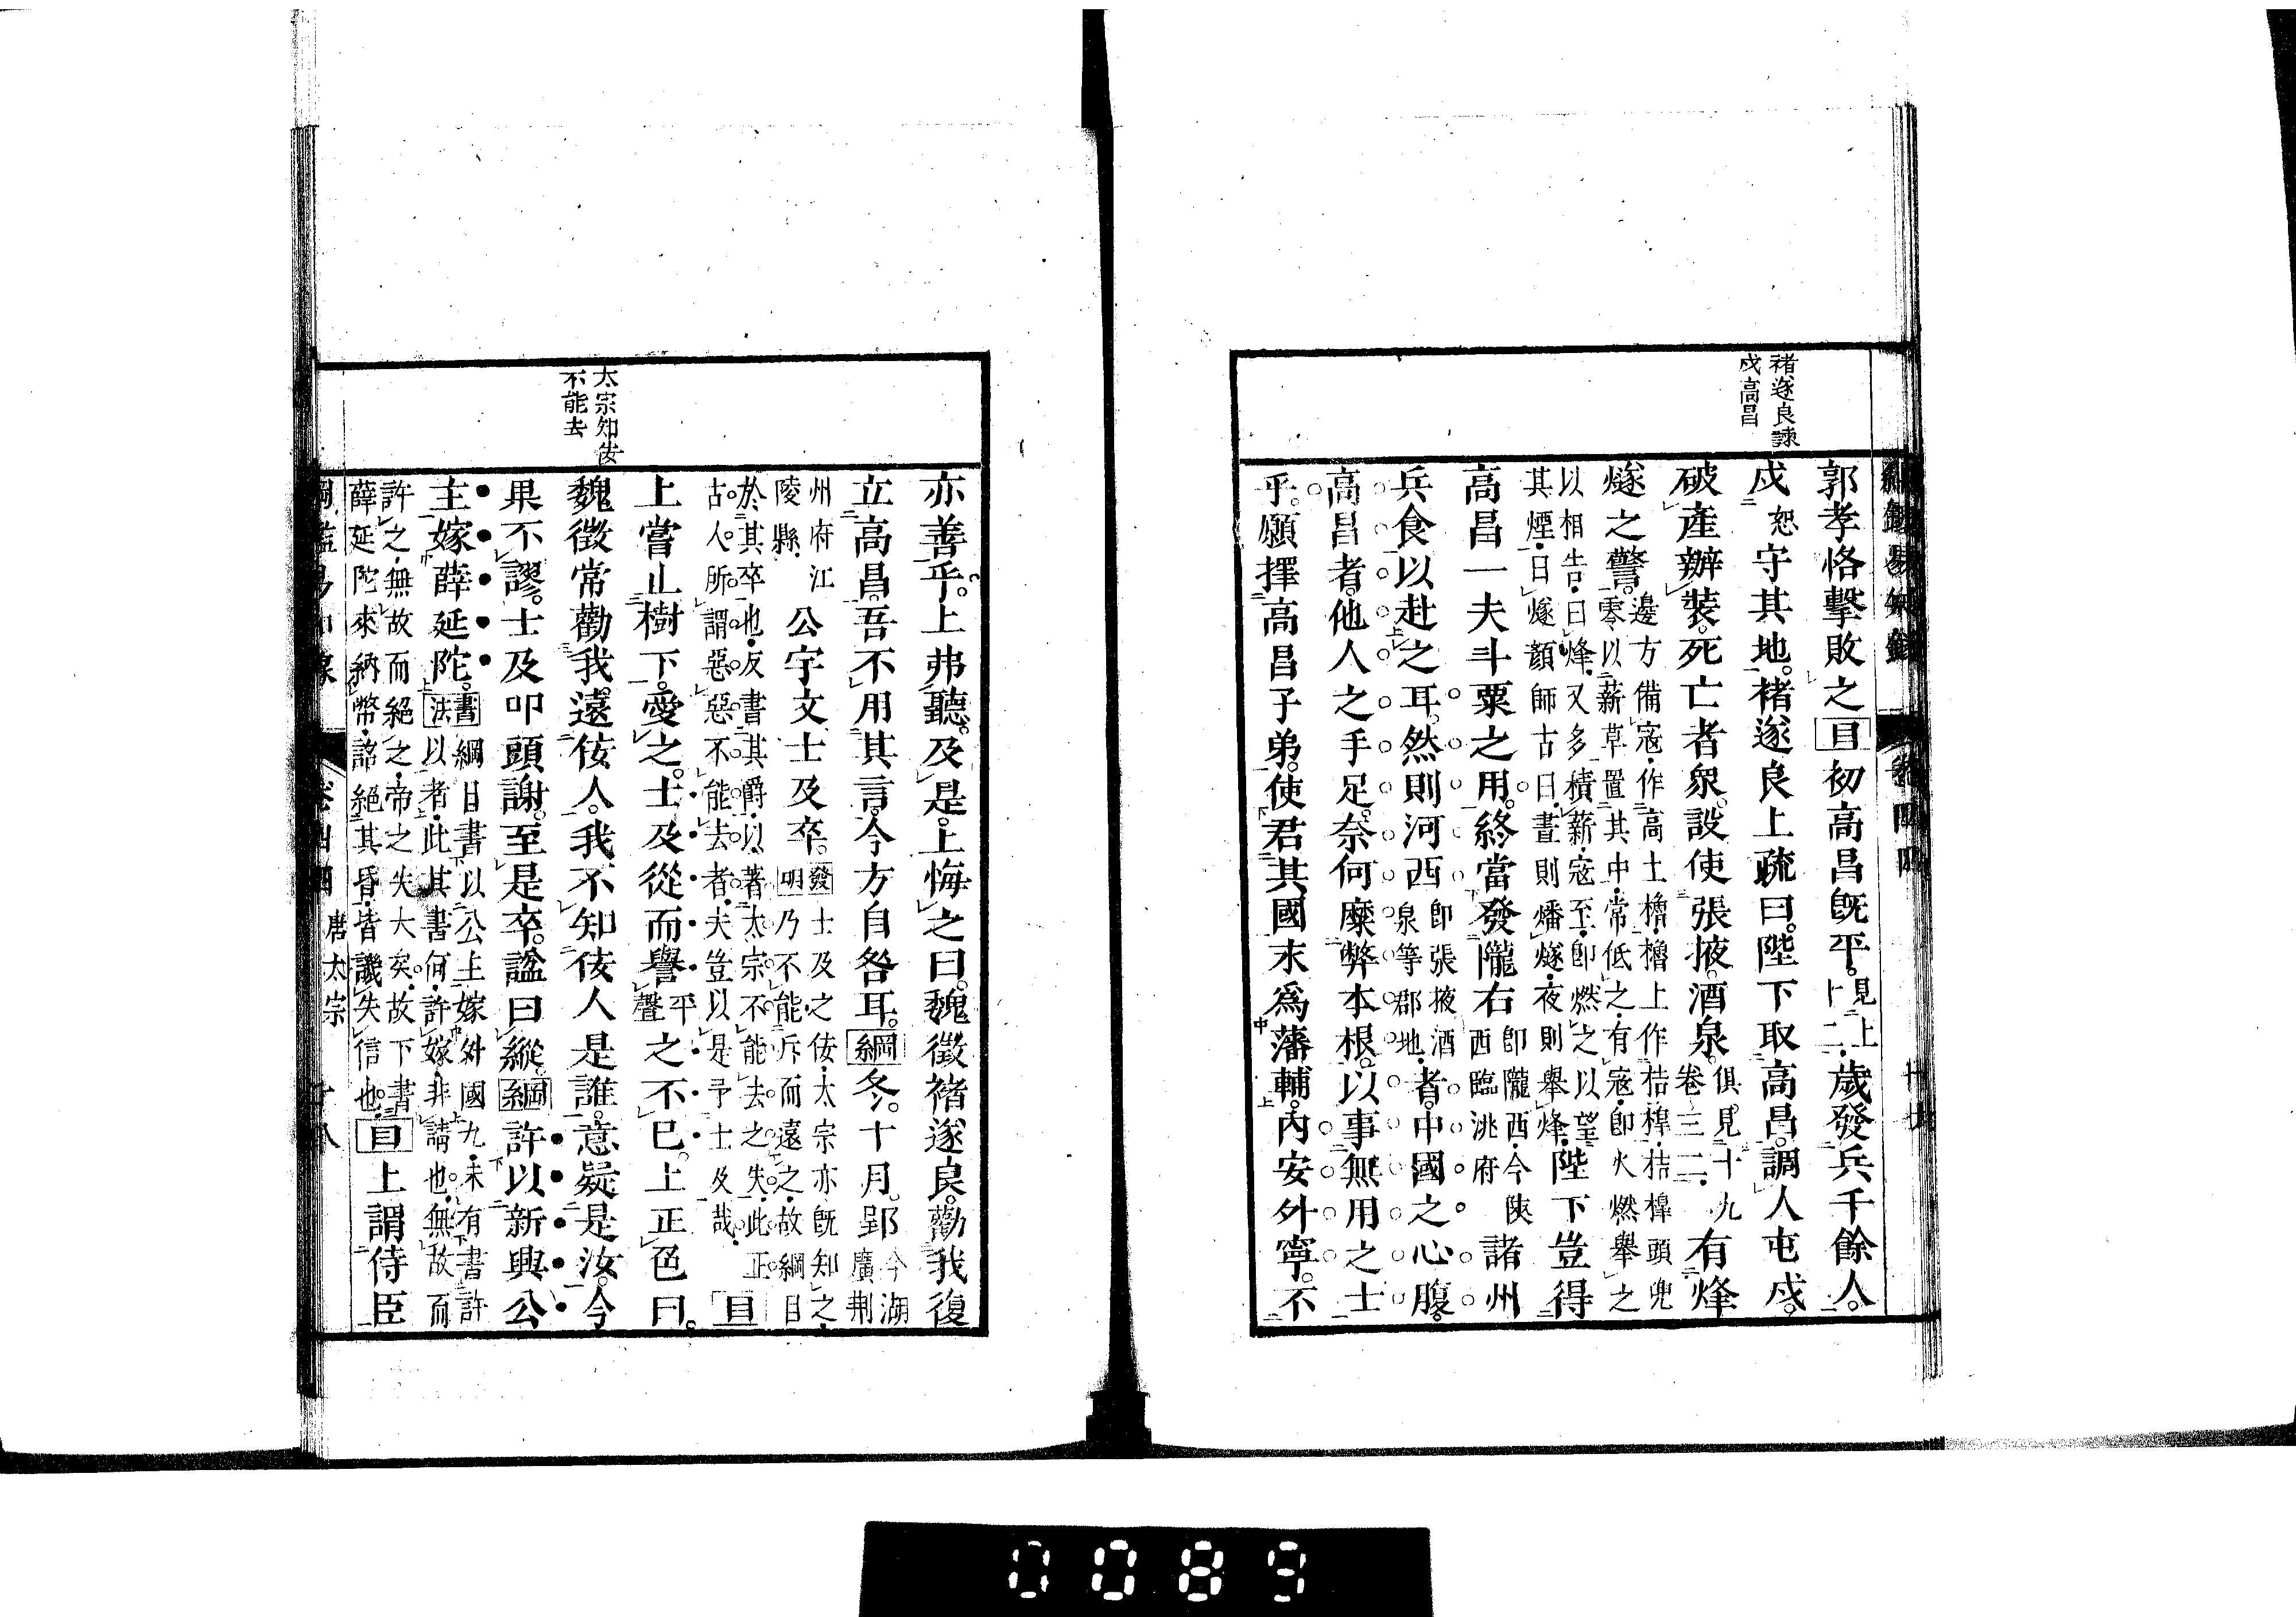 褚遂良諫
戍高昌
郭孝恪擊敗之目初高昌旣平見上十二歲發兵千餘人
戍恕守其地褚遂良上疏曰陛下取高昌調人屯戍
破產辦裝死亡者衆設使張掖酒泉俱見十九卷三二有烽
燧之警邊方備寇作高土櫓櫓上作桔槹桔槹頭兜
零以薪草置其中常低之有寇卽火燃舉之
以相告曰烽又多積薪寇至卽燃之以望
其煙曰燧顏師古曰晝則燔燧夜則舉烽陛下豈得
高昌一夫斗粟之用終當發隴右卽隴西今陝西臨洮府諸州
兵食以赴之耳然則河西卽張掖酒泉等郡地者中國之心腹
高昌者他人之手足奈何糜弊本根以事無用之士
乎願擇高昌子弟使君其國末爲藩輔內安外寧不
太宗知佞
不能去
亦善乎上弗聽及是上悔之曰魏徵褚遂良勸我復
立高昌吾不用其言今方自咎耳綱冬十月郢今湖廣荆
州府江陵縣公宇文士及卒發明士及之佞太宗亦旣知之
乃不能斥而遠之故綱目
於其卒也反書其爵以著太宗不能去之失此正
古人所謂惡惡不能去者夫豈以是予士及哉目
上嘗止樹下愛之士及從而譽平聲之不已上正色曰
魏徵常勸我遠佞人我不知佞人是誰意疑是汝今
果不謬士及叩頭謝至是卒諡曰縱綱許以新興公
主嫁薛延陀書法綱目書以公主嫁外國九未有書許
以者此其書何許嫁非請也無故而
許之無故而絕之帝之失大矣故下書
薛延陀來納幣詔絕其昏皆譏失信也目上謂侍臣
唐太宗 十八